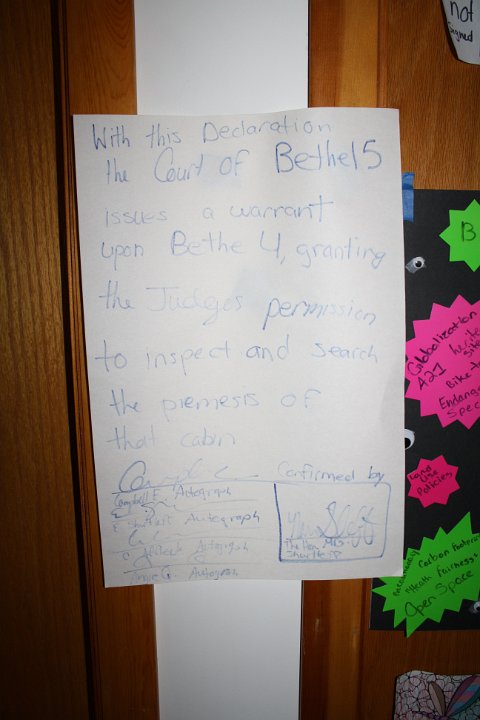 With this Declaration
the Court of Bethel 5
issues a warrant
upon Bethe 4, granting
the Judges permission
to inspect and search
the piemesis of
that cabin
Confirmed by
Campbell E. Autograph
Autograph
Autograph
Annie G Autograph
The Hon.
not
Signed
B
Globalization
A21
Bike
Endange
Spec
Land
Use
Policies
Carbon Footprin
Health Fairness
Open Space